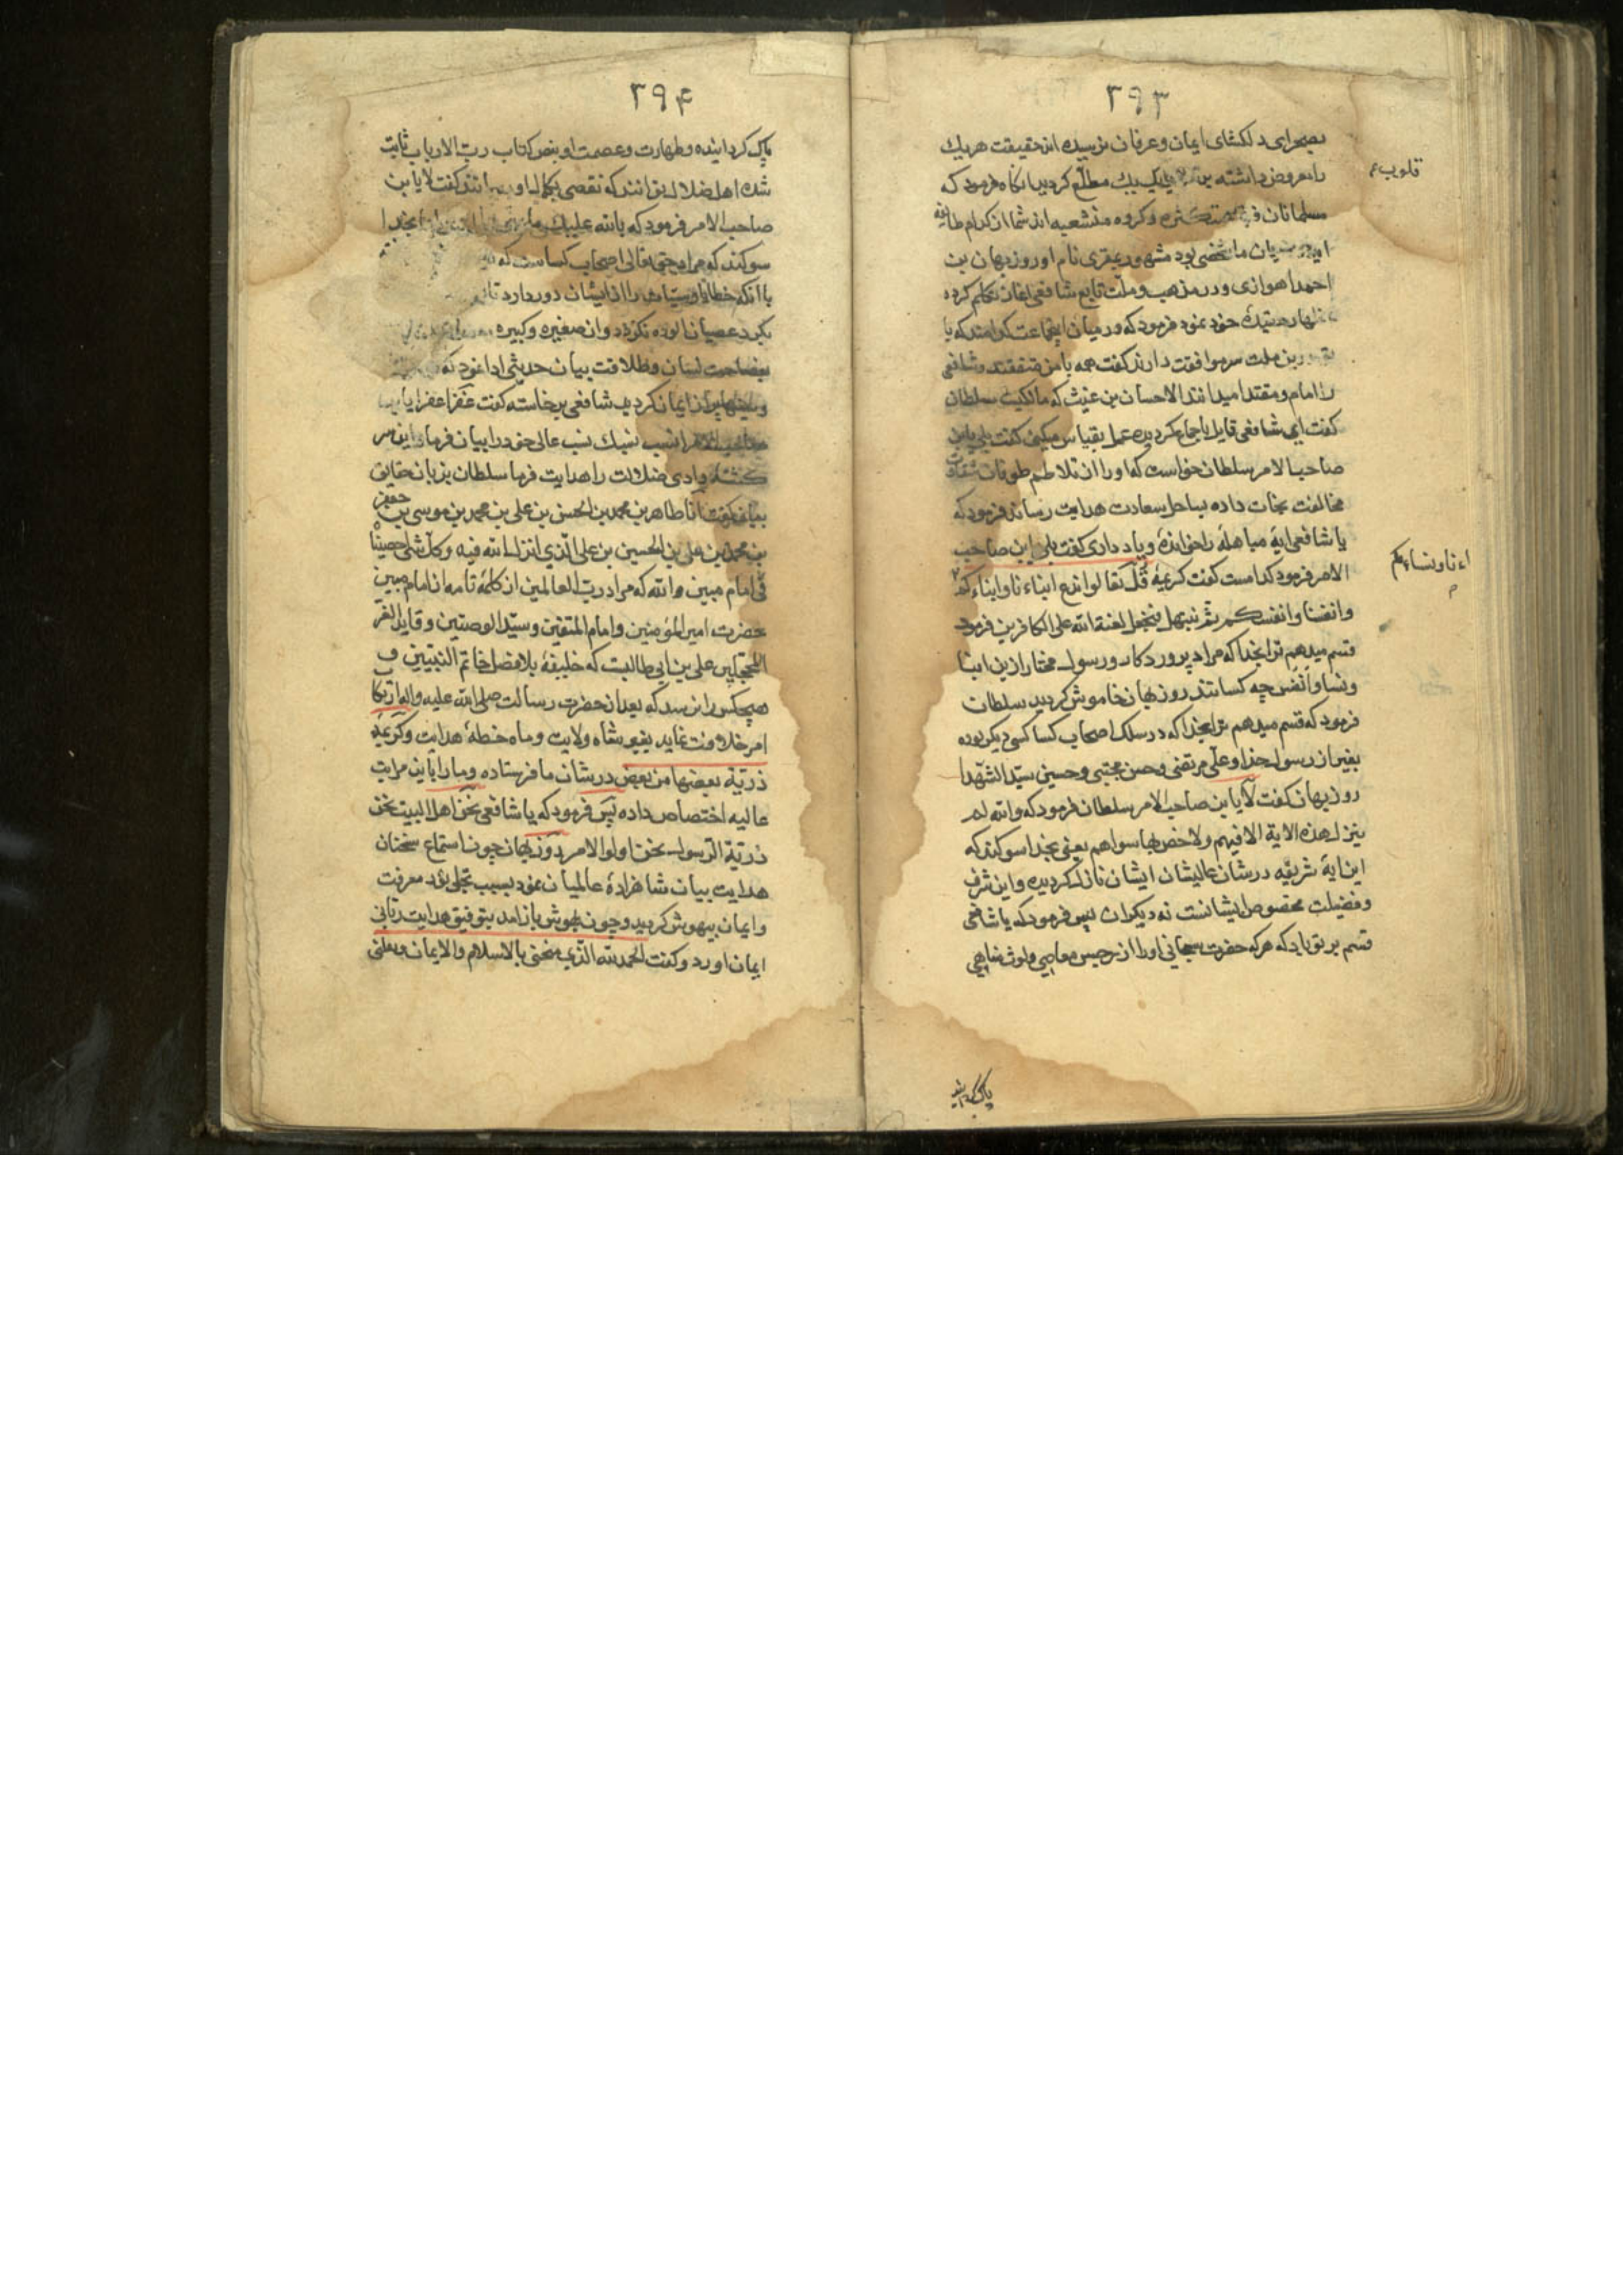 ۲۹۳
بصحرای دلکشای ایمان و عرفان نرسیده اند حقیقت هر یک
را معروض داشته بر یک یک مطلّع کردید انکاه فرمود که
مسلمانان متکثره و کروه منشعبه اند شما از کدام طایفه
اید میان ما شخصی بود مشهور بمقری نام او روزبهان بن
احمد اهوازی و در مذهب و ملّت تابع شافعی اغاز تکلم کرده
اظهار عقیدهٔ خود نمود فرمود که در میان اینجماعت کدامند که با
تو درین ملت سر موافقت دارند کفت همه با من متفقند و شافعی
را امام و مقتدا میدانند الا حسان بن غیث که مالکیست سلطان
کفت ای شافعی قایل باجماع کردیده عمل بقیاس میکنی کفت بلی یابن
صاحب الامر سلطان خواست که او را از تلاطم طوفان شقاق
مخالفت نجات داده بساحل سعادت هدایت رساند فرمود که
یا شافعی ایهٔ مباهله را خواندهٔ و یاد داری کفت بلی یابن صاحب
الامر فرمود کدامست کفت کریمهٔ قل تعالوا ندع ابناءنا و ابناءکم
وانفسنا وانفسکم ثم نبتهل فنجعل لعنة الله علی الکافرین فرمود
قسم میدهم ترا بخدا که مراد پروردکار و رسول مختار ازین ابنا
و نسا و انفس چه کسانند روزبهان خاموش کردید سلطان
فرمود که قسم میدهم ترا بخدا که در سلک اصحاب کسا کسی دیکر بوده
بغیر از رسول خدا و علی مرتضی و حسن مجتبی و حسین سیّد الشهدا
روزبهان کفت لا یابن صاحب الامر سلطان فرمود که والله لم
ینزل هذه الایة الا فیهم ولا خص بها سواهم یعنی بخدا سوکند که
این ایهٔ شریفه در شان عالیشان ایشان نازل کردیده و این شرف
و فضیلت مخصوص ایشانست نه دیکران پس فرمود که یا شافعی
قسم بر تو باد که هر که حضرت سبحانی او را از رجس معاصی و لوث مناهی
پاک کردانیده
قلوب
ءنا و نساءکم
۲۹۴
پاک کردانیده و طهارت و عصمت او بنص کتاب رب الارباب ثابت
شده اهل ضلال توانند که نقصی بکمال او کفت لا یابن
صاحب الامر فرمود که بالله علیک بخدا
سوکند که مراد حق تعالی اصحاب کساست که
با انکه خطایا و سیّات را از ایشان دور دارد تا
بکرد عصیان الوده نکردد و از صغیره و کبیره
بفصاحت لسان و طلاقت بیان حدیثی ادا نمود که
ایمان کردید شافعی برخاسته کفت غفرا غفرا یابن
صاحب الامر انسب نسبک نسب عالی خود را بیان فرما و این سر
کشتهٔ وادی ضلالت را هدایت فرما سلطان بزبان حقایق
بیان کفت انا طاهر بن محمد بن الحسن بن علی بن محمد بن موسی بن جعفر
بن محمد بن علی بن الحسین بن علی الذی انزل الله فیه وکل شیء احصیناه
فی امام مبین والله که مراد رب العالمین از کلمهٔ تامه از امام مبین
حضرت امیر المؤمنین و امام المتقین و سیّد الوصیین و قاید الغر
المحجلین علی بن ابی طالبست که خلیفهٔ بلا فصل خاتم النبیین و
هیچکس را نرسد که بعد از حضرت رسالت صلی الله علیه واله ارتکاب
امر خلافت نماید بغیر شاه ولایت و ماه خطهٔ هدایت و کریمهٔ
ذریّة بعضها من بعض در شان ما فرستاده و ما را باین مراتب
عالیه اختصاص داده پس فرمود که یا شافعی نحن اهل البیت نحن
ذریّة الرسول نحن اولوا الامر روزبهان چون استماع سخنان
هدایت بیان شاهزادهٔ عالمیان نمود بسبب تجلی نور معرفت
و ایمان بیهوش کردید و چون بهوش باز امد بتوفیق هدایت ربانی
ایمان اورد و کفت الحمد لله الذی منحنی بالاسلام والایمان ونقلنی